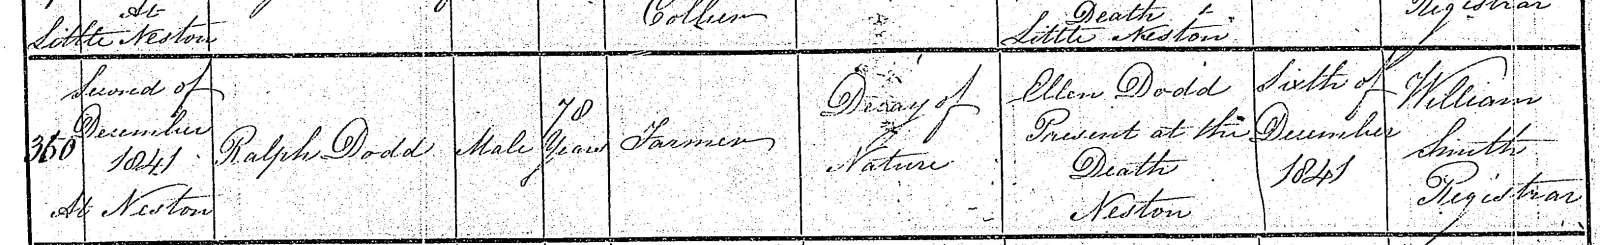 At
Little Neston
Collier
Death
Little Neston
Registrar
360
Second of
December
1841
At Neston
Ralph Dodd
Male
78
Years
Farmer
Decay of
Nature
Ellen Dodd
Present at the
Death
Neston
Sixth of
December
1841
William
Smith
Registrar